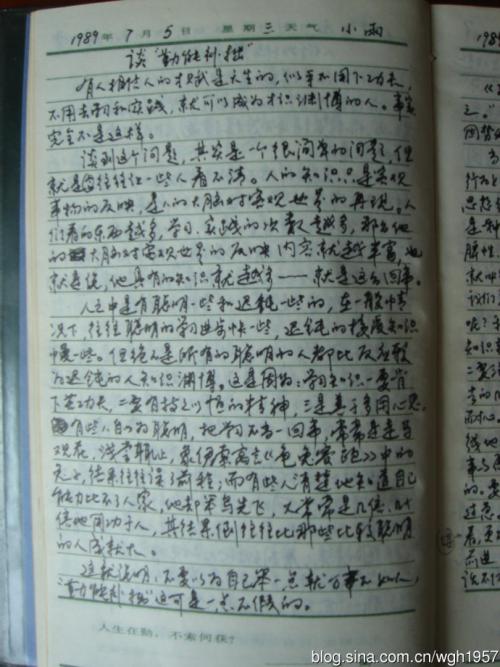 1989年7月5日 星期三 天气 小雨
谈"勤能补拙"
有人相信人的才识是天生的,似乎不用下功夫,
不用去学习和实践,就可以成为才识渊博的人。事实
完全不是这样。
谈到这个问题,其实是一个很简单的问题,但
就是往往一些人看不清。人的知识只是客观
事物的反映,是人的大脑对客观世界的再现。人
们看的东西越多,学习、实践的次数越多,那么他
的大脑对客观世界的反映内容就越丰富,也
就是说,他具有的知识就越多——就是这么回事。
人之中是有聪明一些和迟钝一些的,在一般情
况下,往往聪明的学习进步快一些,迟钝的接受知识
中慢一些。但绝不是所有的聪明的人都比反应较
为迟钝的人知识渊博。这是因为:学习知识一要肯
下苦功夫,二要有持之以恒的精神,三是善于多用心思。
有些人自以为聪明,把学习不当一回事,常常是走马
观花,浅尝辄止,象伊索寓言《龟兔赛跑》中的
兔子,结果往往误了前程;而有些人清楚地知道自己
能力比不了人家,他却笨鸟先飞,又常常是几倍、几十
倍地用功于人,其结果倒往往比那些比较聪明
的人成就大。
这就说明,不要以为自己笨一点就万事不如人,
"勤能补拙"这可是一点不假的。
人生在勤,不索何获?
blog.sina.com.cn/wgh1957